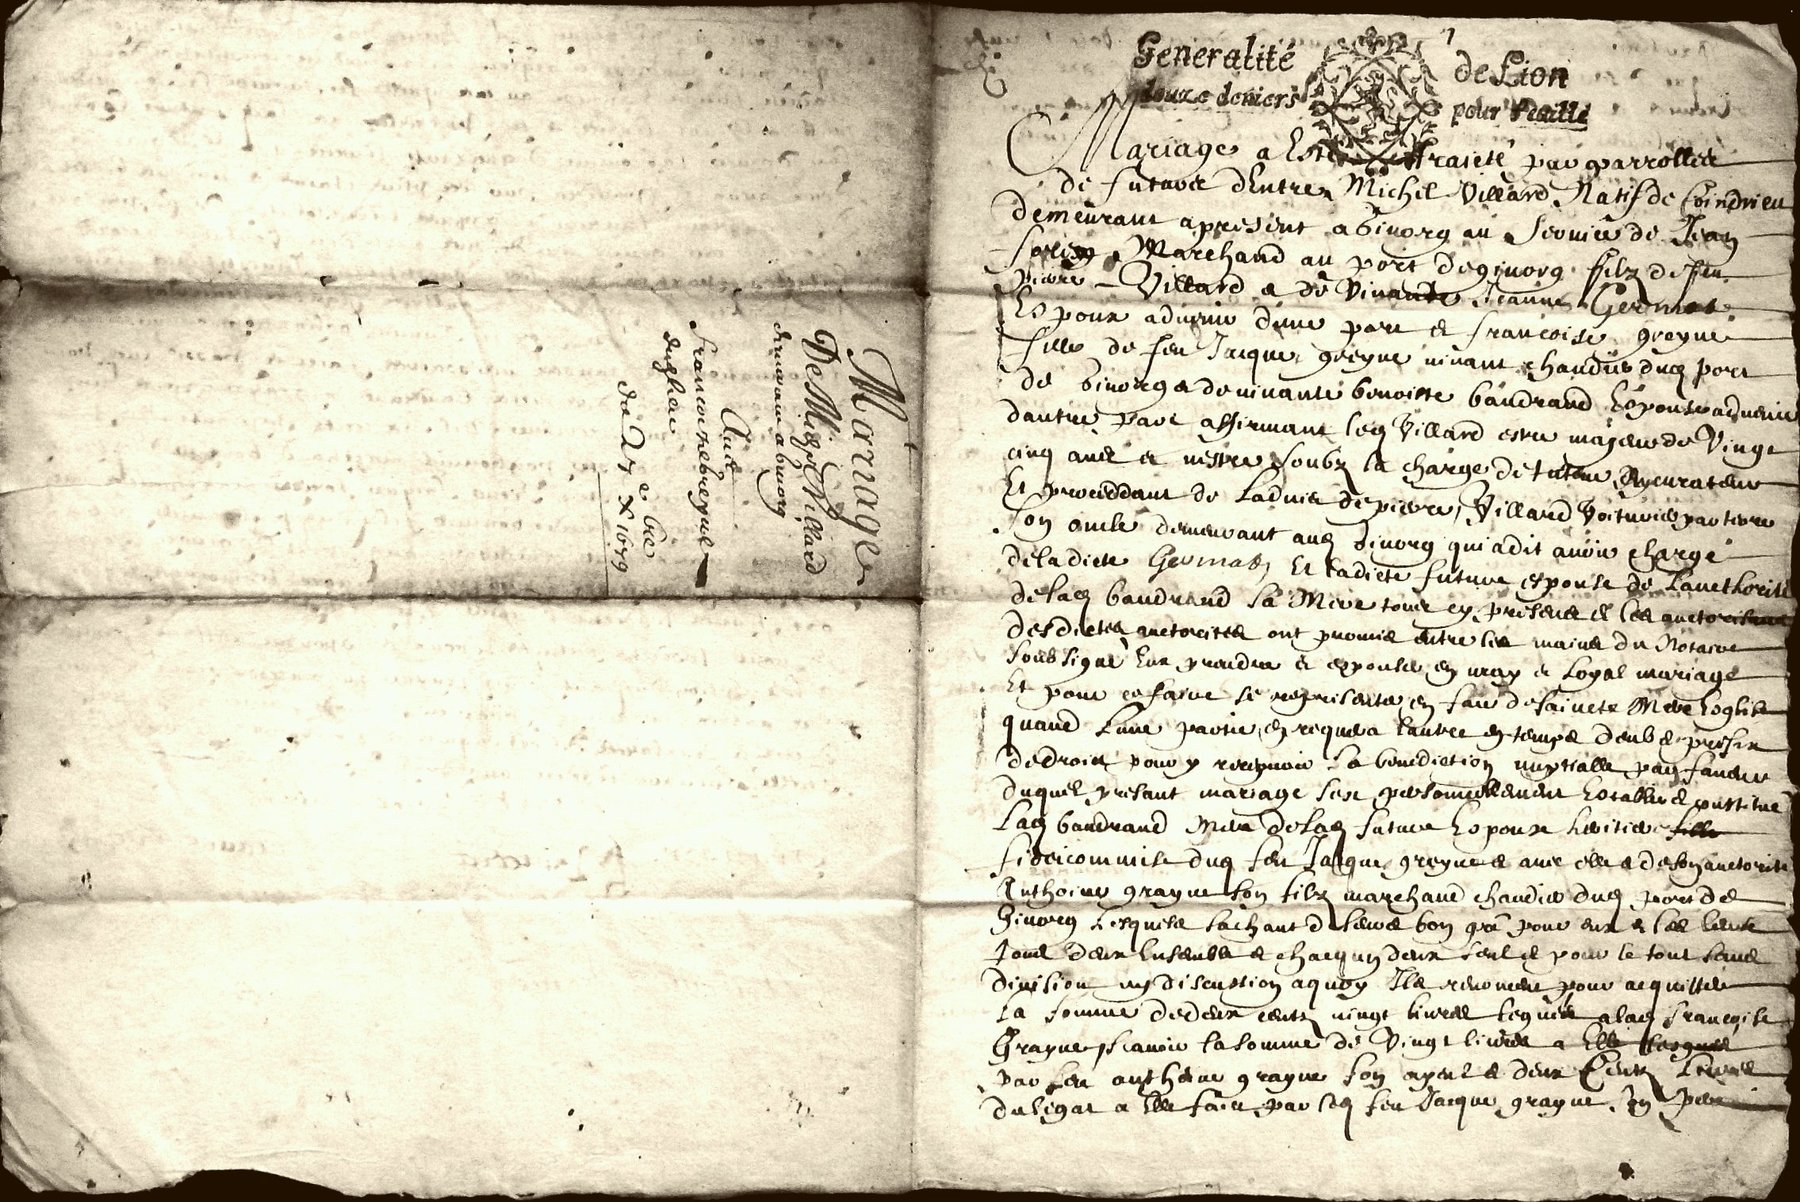 Mariage
De Michel Villard
demeurant a Givorg
Avec
Francoise breyne
du 27e Xbre
1679
Generalité de Lion
douze deniers pour feuille
Mariage a Esté traicté par parrolles
de futures dEntre Michel Villard Natif de Coindrieu
demeurant apresent a Givorg au service de Jean
Marchand au port de Givorg filz de feu
Pierre Villard & de Vivante Jeanne Germat
Espoux advenir dune part & francoise greyne
fille de feu Jacques greyne vivant chandier dud port
de Givorg & de vivante benoiste baudrand Espouse advenir
dautre part affirmant led Villard estre majeur de Vingt
cinq ans et nestre soubz la charge de tuteur Ny curateur
Et proceddant de Ladvis de pierre Villard Voiturier par terre
son oncle demeurant aud Givorg qui a dit avoir charge
de la dicte Germat Et Ladicte future espouse de Lauthorité
de lad baudrand sa Mere tous en presence & les
desdictes auctorites ont promis entre les mains du Notaire
soubsigné Eux prendre & espouser en vray & Loyal mariage
Et pour ce faire se representer en face de saincte Mere Eglise
quand Lune partie en requera Lautre en temps deub & prefix
de droict pour y recepvoir la benediction nuptialle En faveur
duquel presant mariage sest personnellement Establie & constitué
Lad baudrand Mere de lad future Espouse heritiere
fideicommise dud feu Jacque greyne & avec elle & de son auctorité
Anthoine grayne son filz marchand chandier dud port de
Givorg Lesquels sachant de leurs bon gré pour eux & les leurs
Tous deux Ensemble & chacun deux seul & pour le tout sans
division ny discussion a quoy Ils renoncent pour acquitter
La somme de deux cents vingt livres leguée a lad francoise
Grayne scavoir la somme de Vingt livres a Elle leguée
par feu anthoine grayne son ayeul & deux Cents Livres
du legat a Elle faict par led feu Jacque grayne son pere